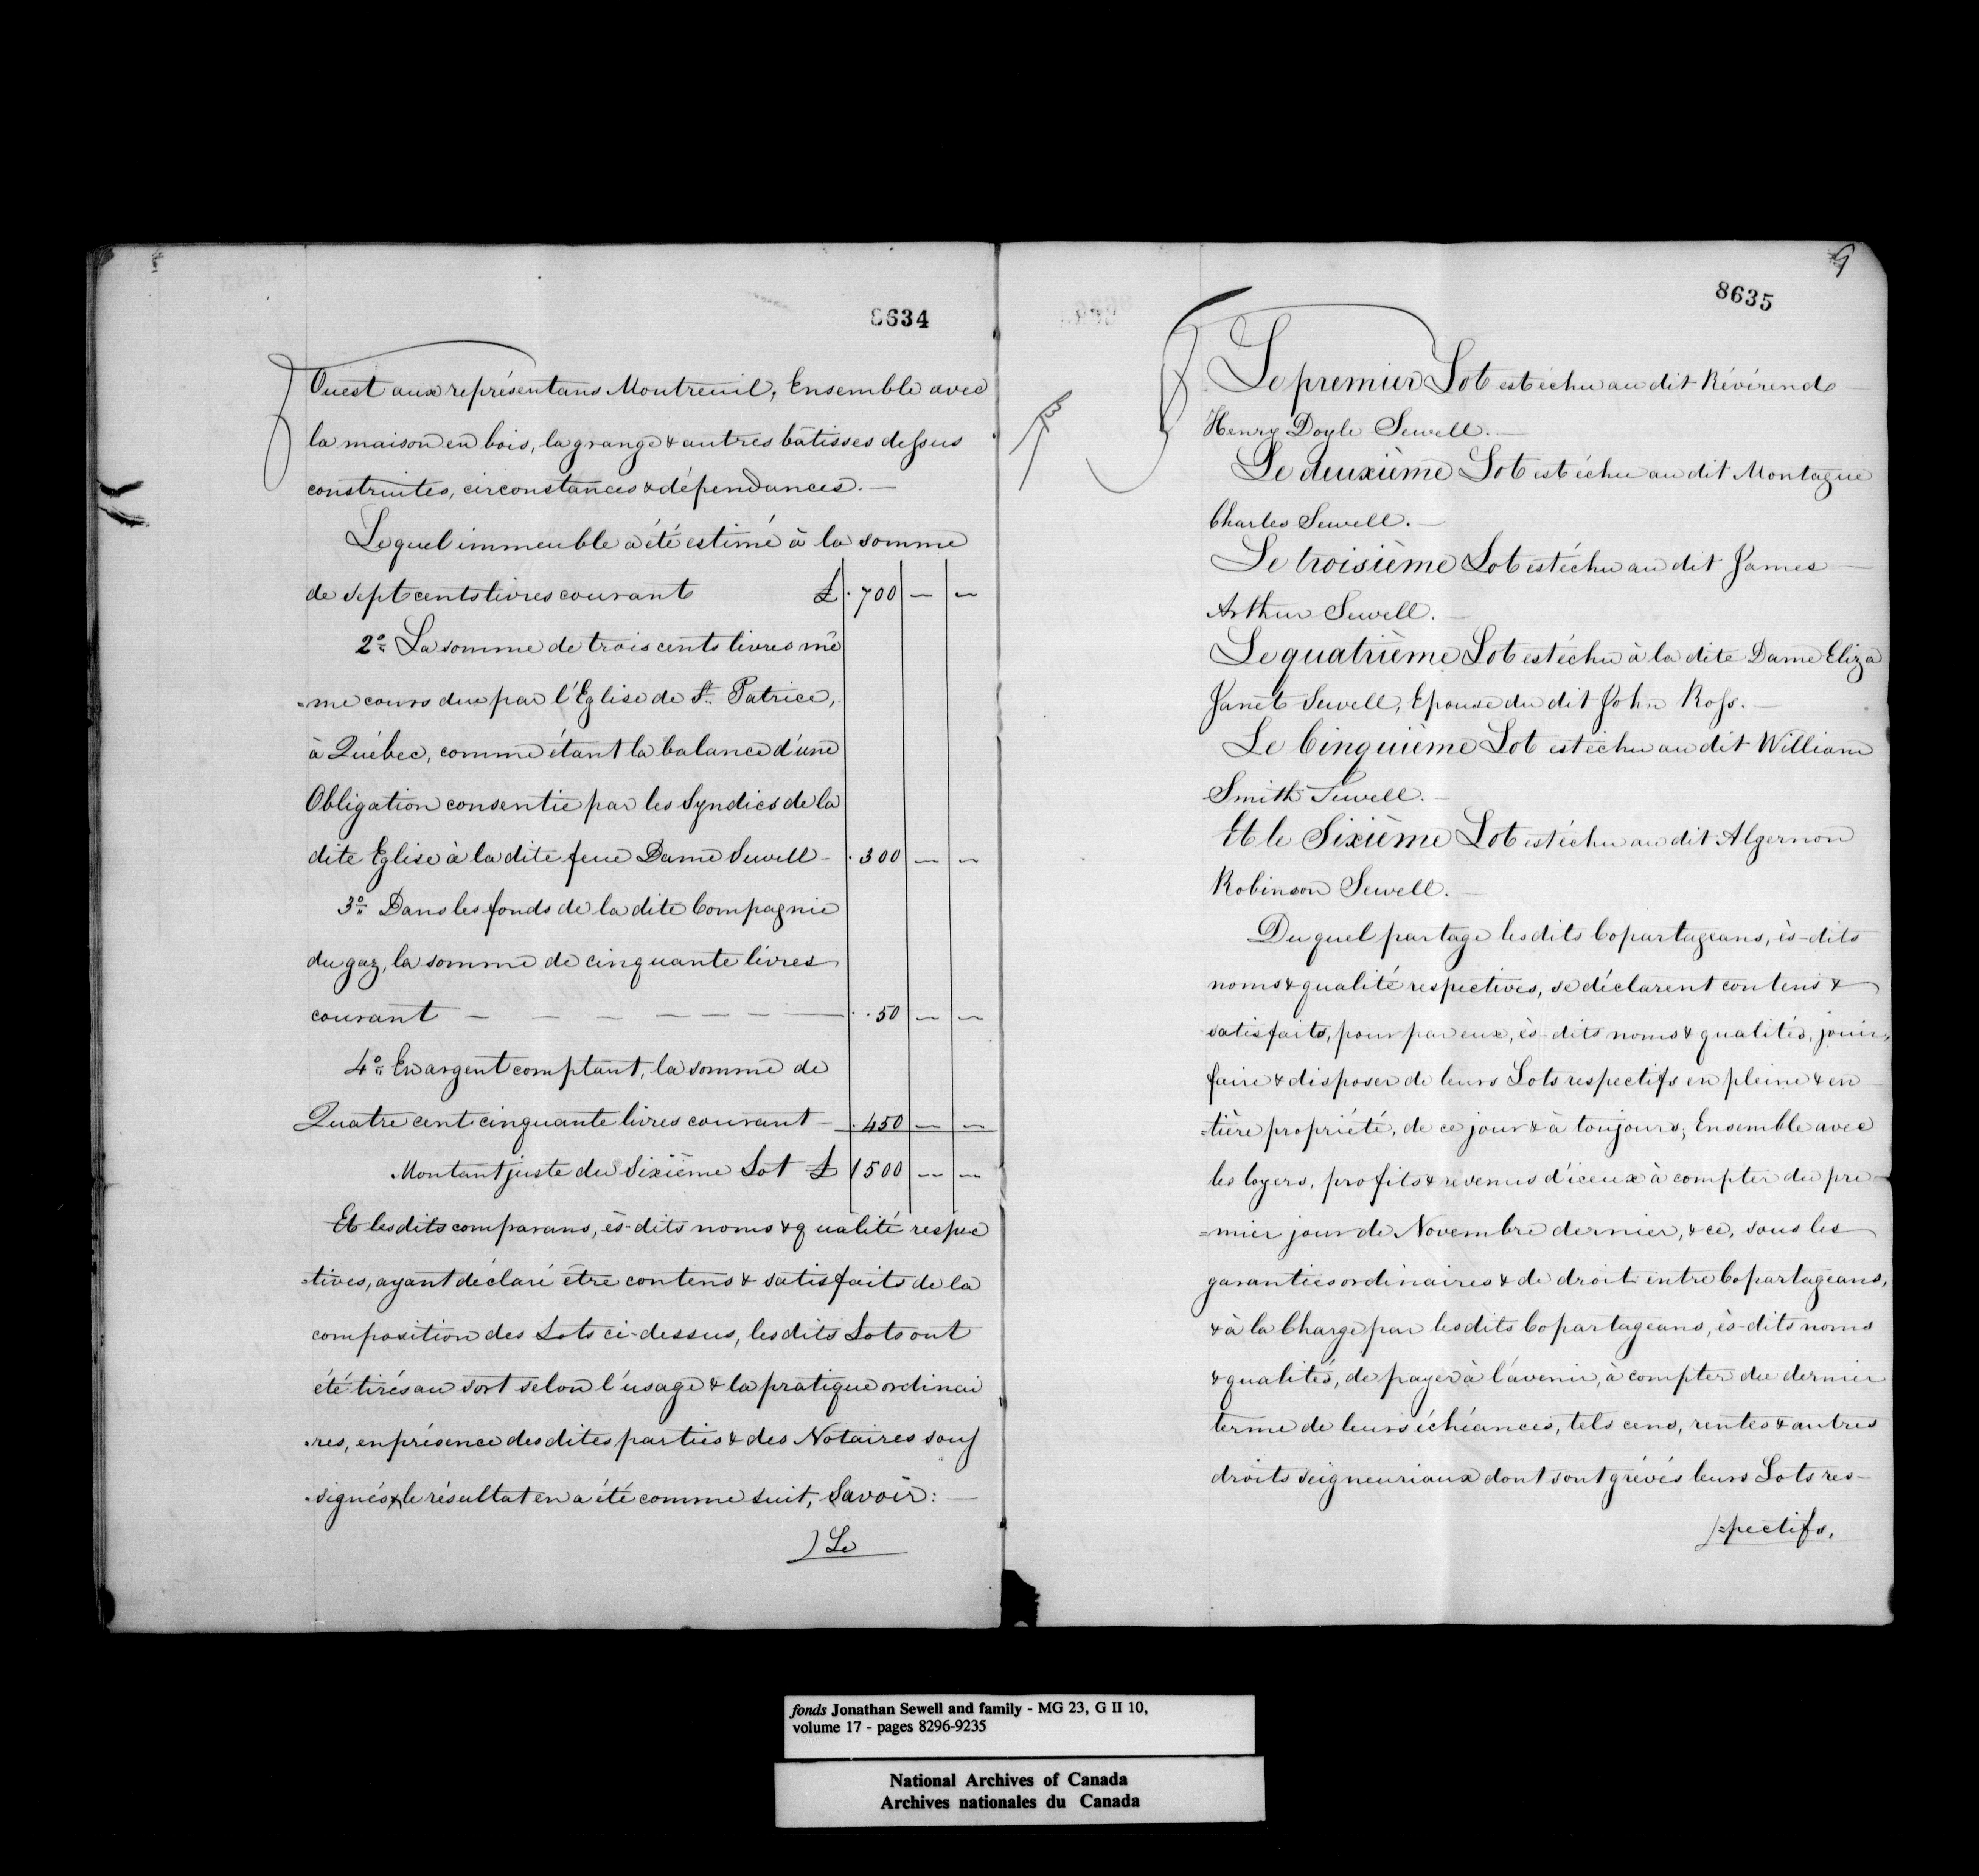 8634
Ouest aux représentans Montreuil, Ensemble avec
la maison en bois, la grange & autres bâtisses dessus
construites, circonstances & dépendances. —
Lequel immeuble a été estimé à la somme
de sept cents livres courant £ . 700 — —
2° La somme de trois cents livres mê
=me cours due par l'Eglise de St. Patrice,
à Québec, comme étant la balance d'une
Obligation consentie par les Syndics de la
dite Eglise à la dite feue Dame Sewell - . 300 — —
3° Dans les fonds de la dite Compagnie
du gaz, la somme de cinquante livres
courant — — — — — — — . . 50 — —
4° En argent comptant, la somme de
Quatre cent cinquante livres courant — . 450 — —
Montant juste du Sixième Lot £ 1500 — —
Et les dits comparans, ès-dits noms & qualité respec
=tives, ayant déclaré être contens & satisfaits de la
composition des Lots ci-dessus, les dits Lots ont
été tirés au sort selon l'usage & la pratique ordinai
=res, en présence des dites parties & des Notaires sous
=signés & le résultat en a été comme suit, Savoir: —
/ Le
9
8635
Le premier Lot est échu au dit Révérend —
Henry Doyle Sewell. —
Le deuxième Lot est échu au dit Montague
Charles Sewell. —
Le troisième Lot est échu au dit James —
Arthur Sewell. —
Le quatrième Lot est échu à la dite Dame Eliza
Janet Sewell, Epouse du dit John Ross. —
Le Cinquième Lot est échu au dit William
Smith Sewell. —
Et le Sixième Lot est échu au dit Algernon
Robinson Sewell. —
Du quel partage les dits Copartageans, ès-dits
noms & qualité respectives, se déclarent contens &
satisfaits, pour par eux, ès-dits noms & qualités, jouir,
faire & disposer de leurs Lots respectifs en pleine & en
=tière propriété, de ce jour & à toujours; Ensemble avec
les loyers, profits & revenus d'iceux à compter du pre
=mier jour de Novembre dernier, & ce, sous les
garanties ordinaires & de droit entre Copartageans,
& à la Charge par les dits Copartageans, ès-dits noms
& qualités, de payer à l'avenir, à compter du dernier
terme de leurs échéances, tels cens, rentes & autres
droits seigneuriaux dont sont grévés leurs Lots res-
/=pectifs,
fonds Jonathan Sewell and family - MG 23, G II 10,
volume 17 - pages 8296-9235
National Archives of Canada
Archives nationales du Canada